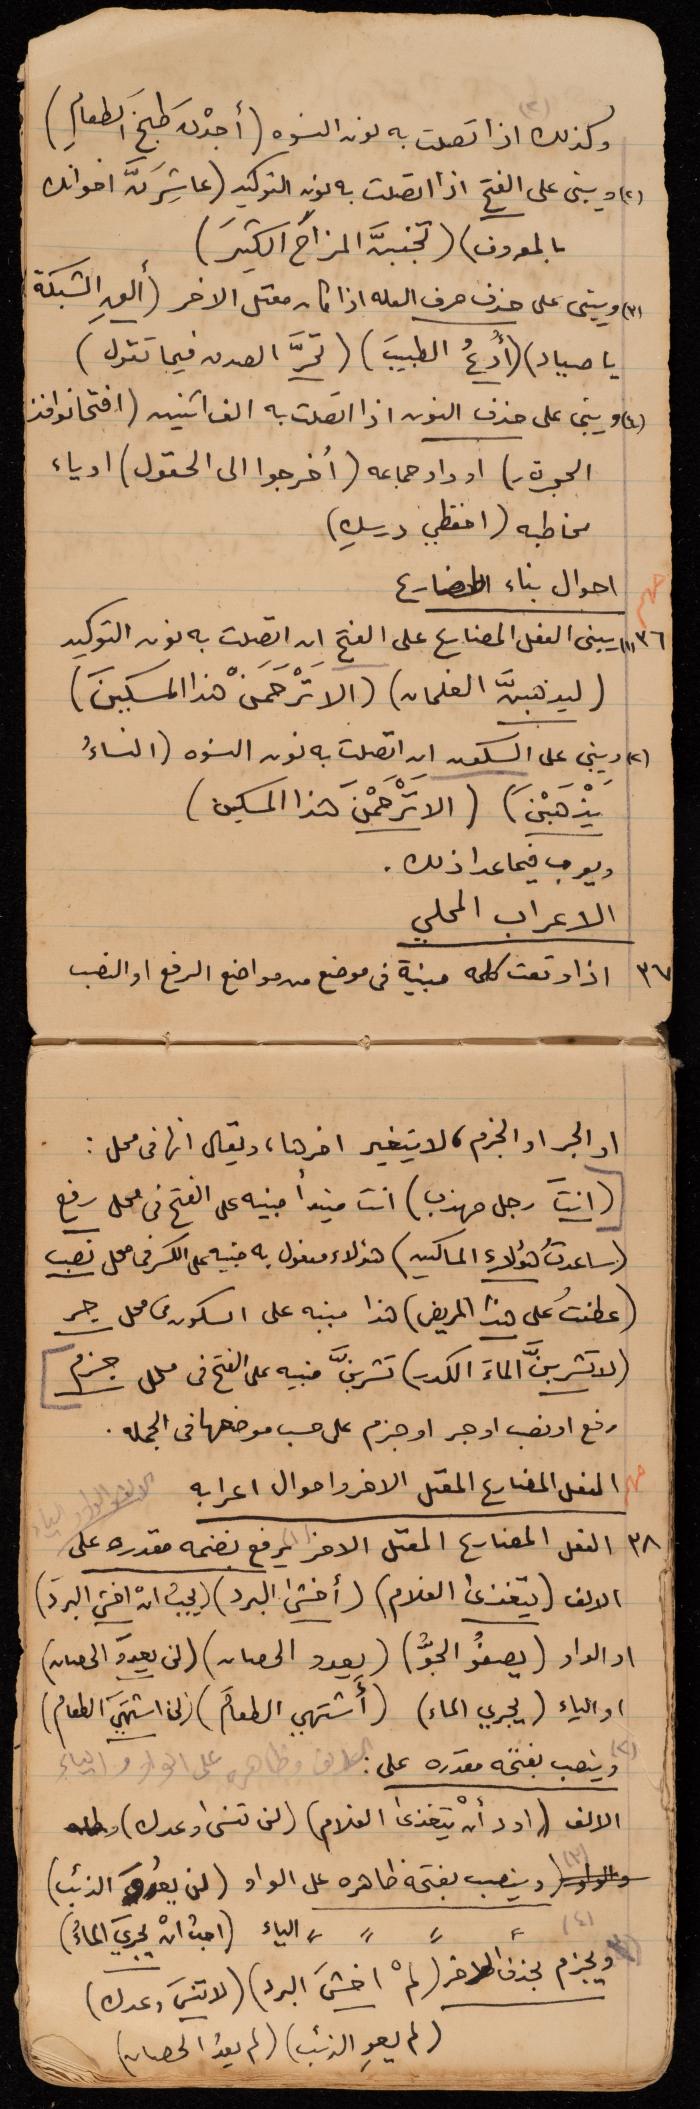 وكذلك اذا اتصلت به نون النسوه (أجدْنَ طبخَ الطعامِ)
(٢) ويبنى على الفتح اذا اتصلت به نون التوكيد (عاشِرَنَّ اخوانك
بالمعروف) (تجنبنَّ المزاحَ الكثيرَ)
(٣) ويبنى على حذف حرف العله اذا كان معتل الاخر (ألقِ الشبكة
يا صياد) (أُدعُ الطبيبَ) (تحرَّ الصدق فيما تقول)
(٤) ويبنى على حذف النون اذا اتصلت به الف اثنين (افتحا نوافذ
الحجرة) او واو جماعه (أخرجوا الى الحقول) او ياء
مخاطبه (احفظي درسكِ)
مهم احوال بناء المضارع
٣٦ (١) يبنى الفعل المضارع على الفتح ان اتصلت به نون التوكيد
(ليذهبنَّ الغلمان) (الا تَرْحَمَنْ هذا المسكينَ)
(٢) ويبنى على السكون ان اتصلت به نون النسوه (النساءُ
يَذْهَبْنَ) (الا تَرْحَمْنَ هذا المسكين)
ويعرب فيما عدا ذلك .
الاعراب المحلي
٣٧ اذا وقعت كلمه مبنية في موضع من مواضع الرفع او النصب
او الجر او الجزم، لا يتغير اخرها، ويقال انها في محل :
[(انتَ رجل مهذب) انت مبتدأ مبنيه على الفتح في محل رفع
(ساعدتُ هؤلاءِ المساكين) هؤلاء مفعول به مبنيه على الكسر في محل نصب
(عطفتُ على هذا المريض) هذا مبنيه على السكون في محل جر
(لا تشربنَّ الماءَ الكدر) تشربنَّ مبنيه على الفتح في محل جزم]
رفع او نصب او جر او جزم على حسب موضعها في الجمله .
مهم الفعل المضارع المعتل الاخر واحوال اعرابه
الالف والواو والياء
٣٨ الفعل المضارع المعتل الاخر (١) يرفع بضمه مقدره على
الالف (يتغذى الغلام) (أخشى البرد) (يجب انْ اخشى البردَ)
او الواو (يصفُو الجوُّ) (يعدو الحصان) (لن يعدوَ الحصان)
او الياء (يجري الماء) (أشتهي الطعامَ) (لن اشتهيَ الطعام)
(٢) وينصب بفتحه مقدره على : الالف وظاهره على الواو والياء
الالف (اود أنْ يتغذى الغلام) (لن تنسى وعدك)
والواو (وينصب بفتحة ظاهره على الواو (لن يعوَ الذئب)
〃 〃 〃 〃 الياء (احبُ انْ يجريَ الماءُ)
(٣) ويجزم بحذف الاخر (لمْ اخشَ البرد) (لا تنسَ وعدك)
(لم يعوِ الذئب) (لم يعدُ الحصان)